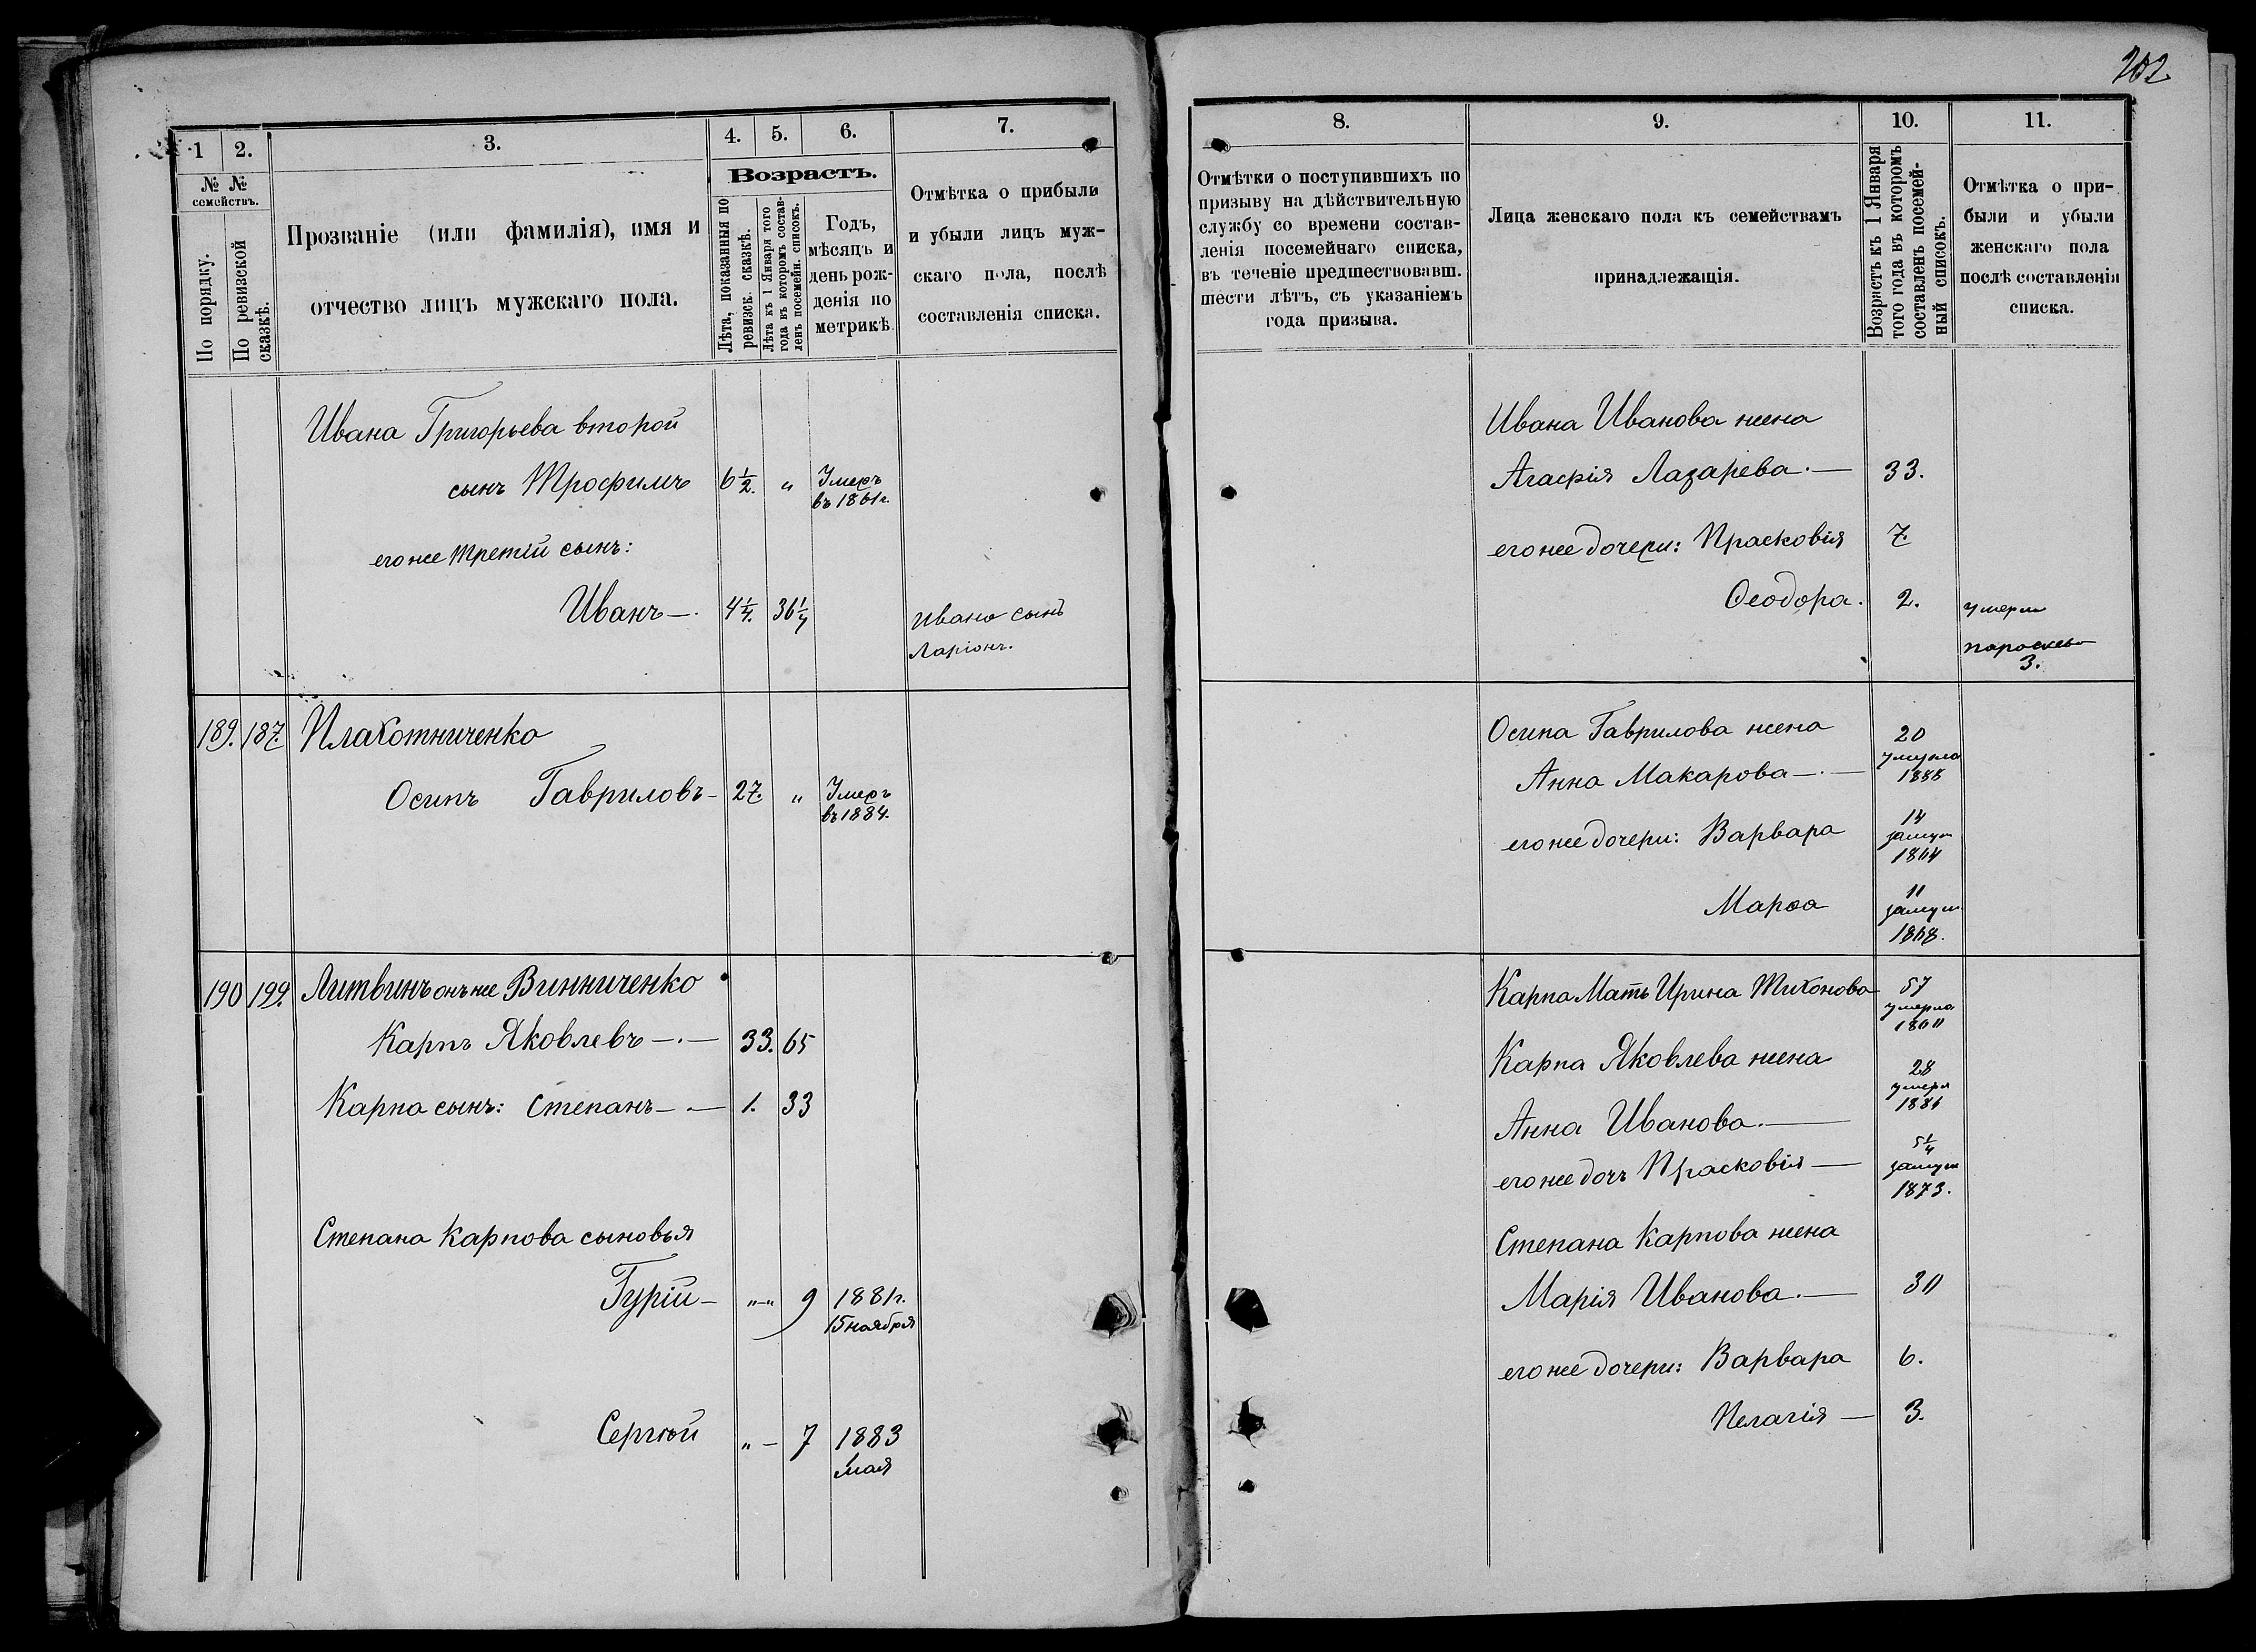 202
1
2.
3.
4.
5.
6.
7.
№ №
семействъ.
По порядку.
По ревизской
сказкѣ.
Прозваніе (или фамилія), имя и
отчество лицъ мужскаго пола.
Возрастъ.
Лѣта, показанныя по
ревизск. сказкѣ.
Лѣта къ 1 Января того
года въ которомъ состав-
ленъ посемейн. списокъ.
Годъ,
мѣсяцъ и
день рож-
денія по
метрикѣ.
Отмѣтка о прибыли
и убыли лицъ муж-
скаго пола, послѣ
составленія списка.
Ивана Григорьева второй
сынъ Трофимъ 6 1/2. „ Умеръ
въ 1861г.
егоже третій сынъ:
Иванъ —. 4 1/4. 36 1/4
Ивана сынъ
Ларіонъ.
189. 187. Плахотниченко
Осипъ Гавриловъ — 27. „ Умеръ
въ 1884.
190 199. Литвинъ онъ же Винниченко
Карпъ Яковлевъ —.— 33. 65
Карпа сынъ: Степанъ —.— 1. 33
Степана Карпова сыновья
Гурій — „—„ 9 1881г.
15 ноября
Сергѣй „ — 7 1883
мая
8.
9.
10.
11.
Отмѣтки о поступившихъ по
призыву на дѣйствительную
службу со времени состав-
ленія посемейнаго списка,
въ теченіе предшествовавш.
шести лѣтъ, съ указаніемъ
года призыва.
Лица женскаго пола къ семействамъ
принадлежащія.
Возрастъ къ 1 Января
того года въ которомъ
составленъ посемей-
ный списокъ.
Отмѣтка о при-
были и убыли
женскаго пола
послѣ составленія
списка.
Ивана Иванова жена
Агафія Лазарева.— 33.
егоже дочери: Прасковія 7.
Ѳеодора. 2.
умерли
параскева
3.
Осипа Гаврилова жена 20
умерла
Анна Макарова —.— 1888
егоже дочери: Варвара 14
замуж
1864
Марѳа 11
замуж
1868.
Карпа Мать Ирина Тихонова 57
умерла
1860
Карпа Яковлева жена 28
умерл
Анна Иванова.— 1886
егоже дочь Прасковія — 5 1/4
замуж
1873.
Степана Карпова жена
Марія Иванова.— 30
егоже дочери: Варвара 6.
Пелагія — 3.